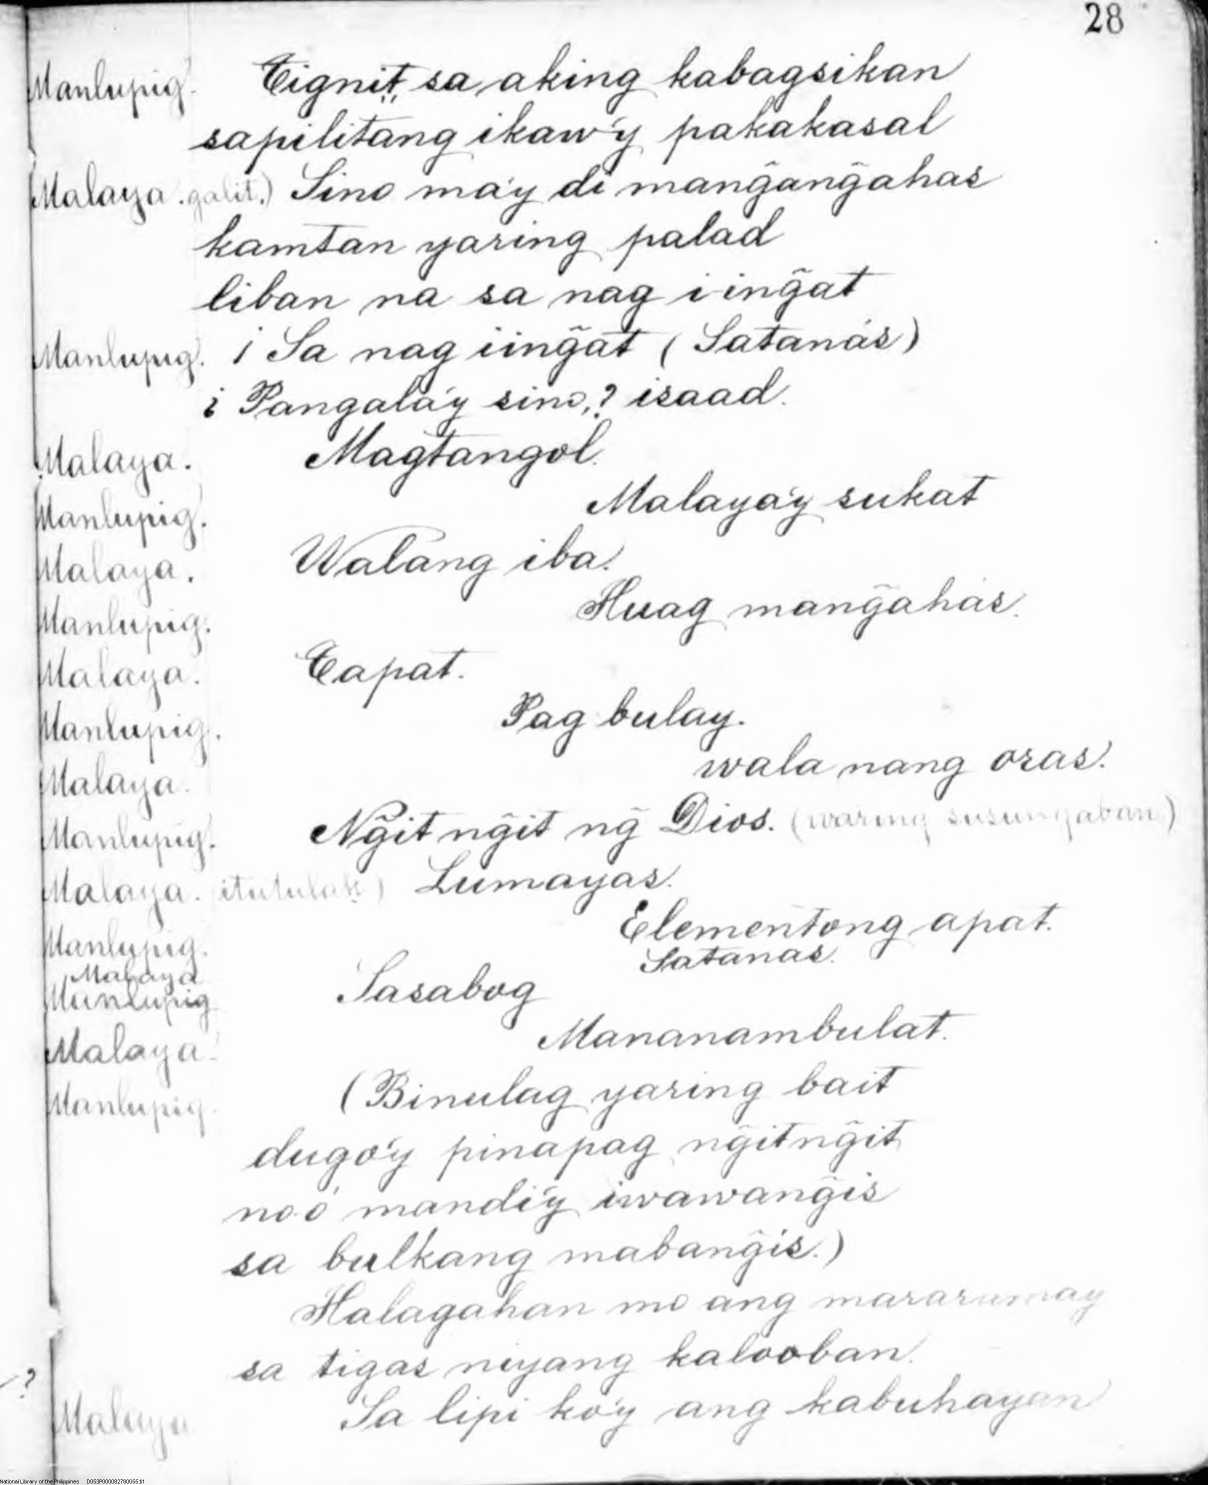 28
Manlupig. Tignit sa aking kabagsikan
sapilitang ikaw'y pakakasal
Malaya. galit.) Sino ma'y di mang̃ang̃ahas
kamtan yaring palad
liban na sa nag i-ing̃at
Manlupig. ¡ Sa nag iing̃at ( Satanás)
¿ Pangala'y sino,? isaad.
Malaya. Magtangol.
Manlupig. Malaya'y sukat
Malaya. Walang iba.
Manlupig. Huag mang̃ahás.
Malaya. Tapat.
Manlupig. Pag bulay.
Malaya. wala nang oras.
Manlupig. Ng̃it ng̃it ng̃ Dios. (waring susungaban)
Malaya. (itutulak) Lumayas.
Manlupig. Elementong apat.
Malaya Satanas.
Manlupig Sasabog
Malaya. Mananambulat.
Manlupig. (Binulag yaring bait
dugo'y pinapag ng̃itng̃it
no-ó mandi'y iwawang̃is
sa bulkang mabang̃is.)
Halagahan mo ang mararamay
sa tigas niyang kalooban.
?
Malaya Sa lipi ko'y ang kabuhayan
National Library of the Philippines